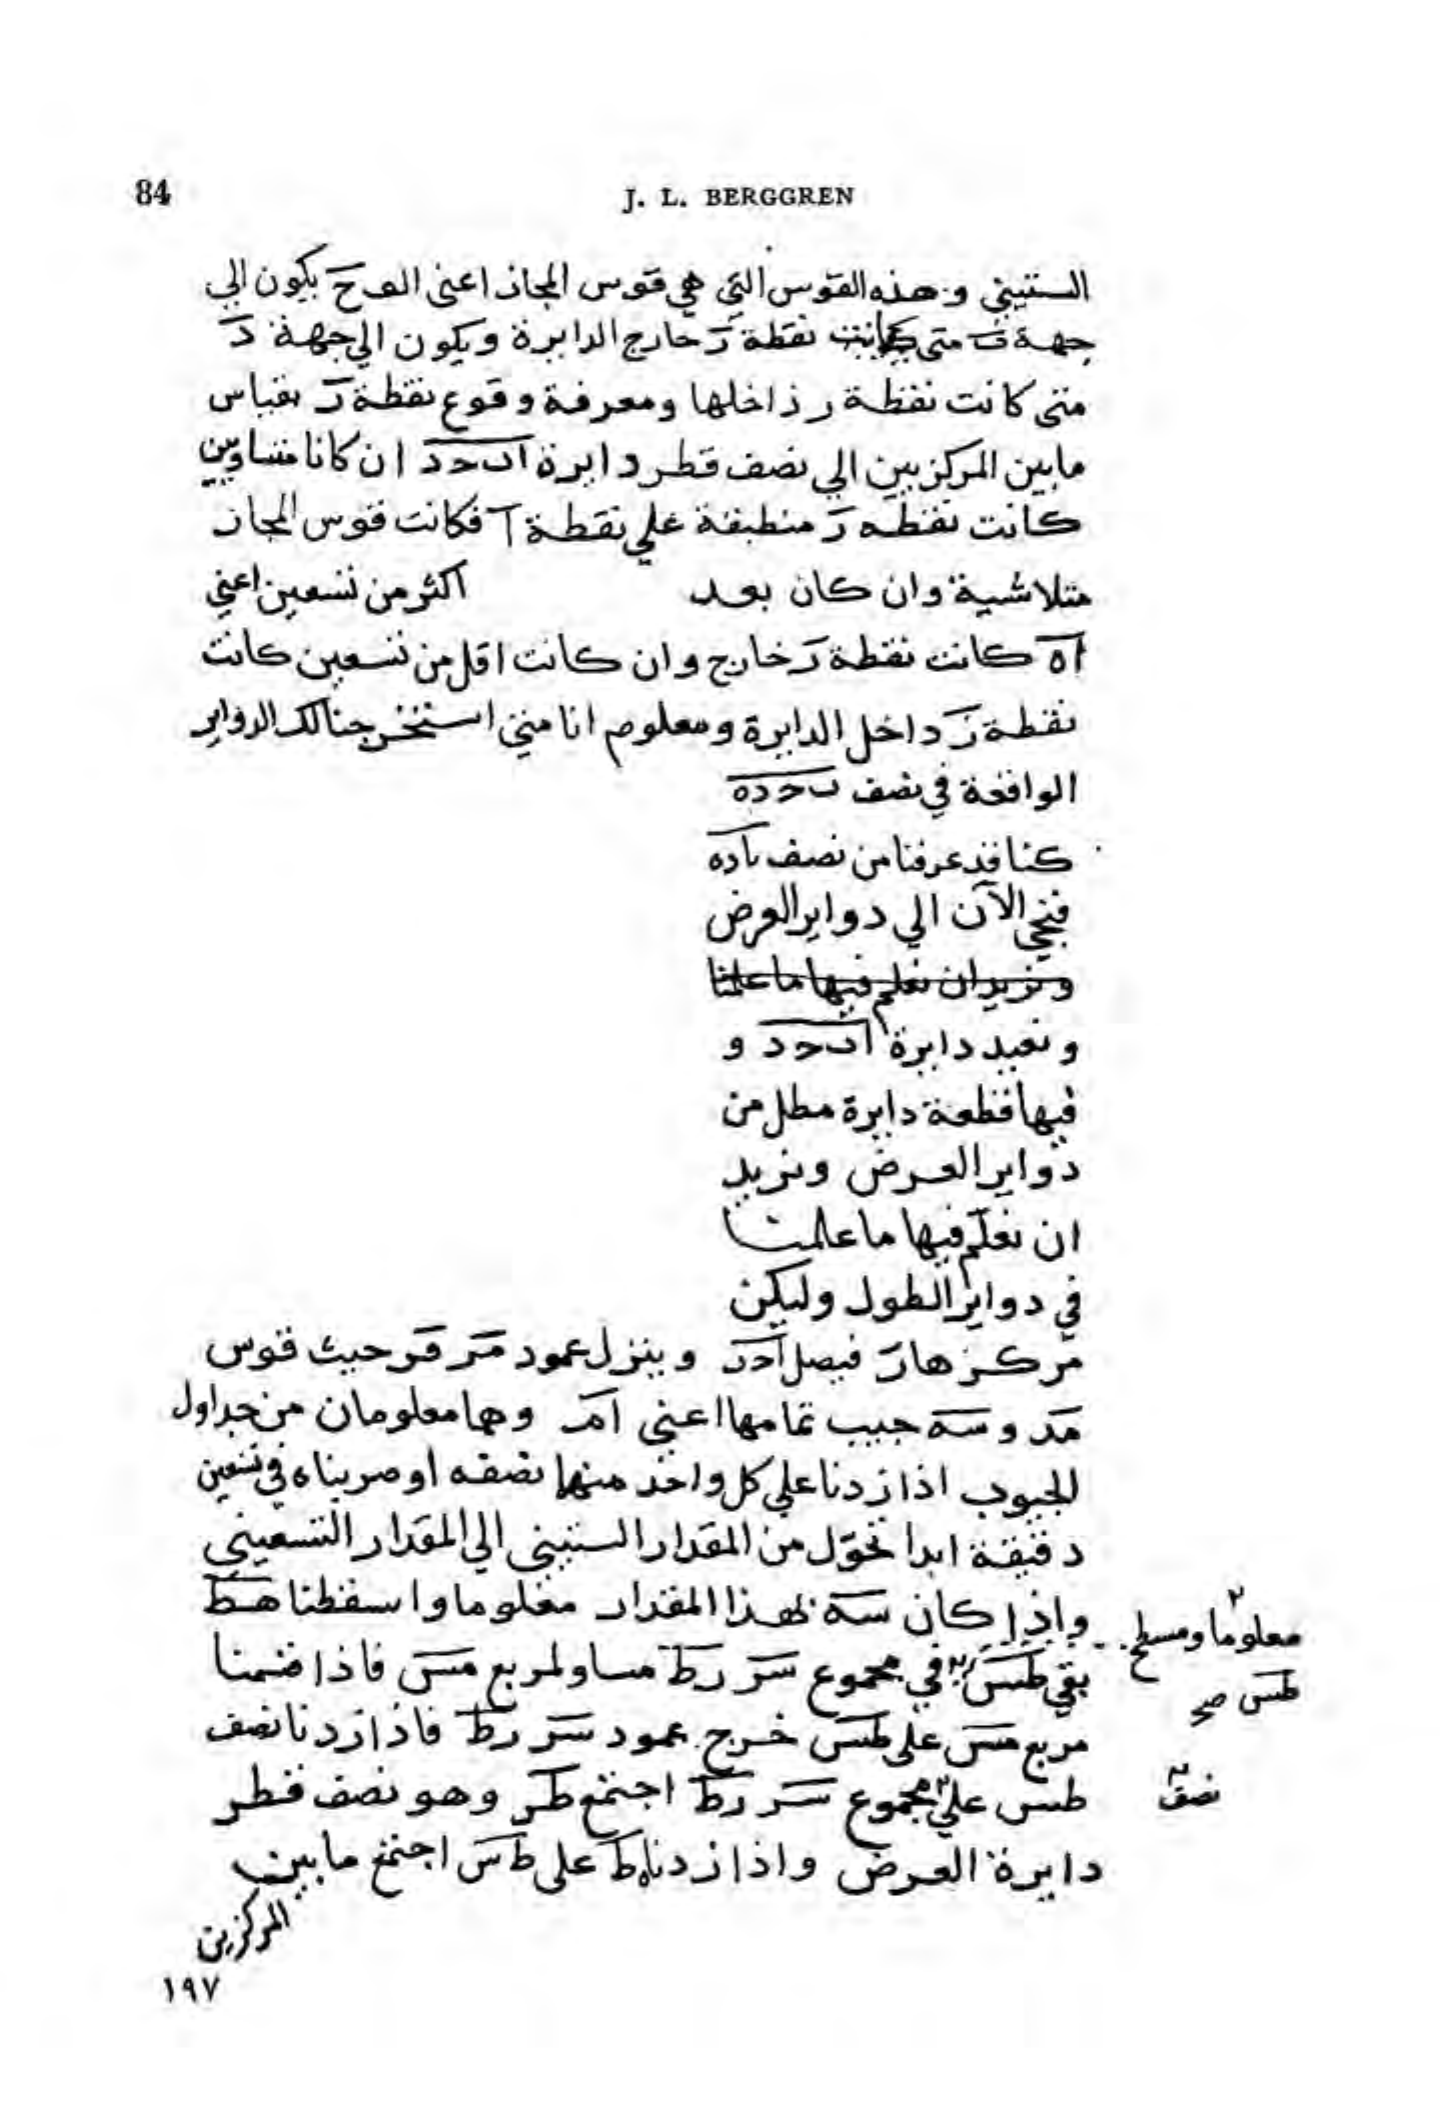 84
J. L. BERGGREN
الستيني وهذه القوس التي هي قوس المجاز اعني الو ح يكون الي
جهة ب متى كانت نقطة ز خارج الدايرة ويكون الي جهة د
متى كانت نقطة ز داخلها ومعرفة وقوع نقطة ز بقياس
مابين المركزيين الي نصف قطر دايرة ابحد ان كانا متساويين
كانت نقطه ز منطبقة علي نقطة آ فكانت قوس المجاز
متلاشية وان كان بعد اكثر من تسعين اعني
اه كانت نقطة ز خارج وان كانت اقل من تسعين كانت
نقطة ز داخل الدايرة ومعلوم انا متي استخرجنا لك الدواير
الواقعة في نصف بحده
كنا قد عرفنا من نصف باده
فنجي الآن الي دواير العرض
ونريد ان نعلم فيها ما علمنا
ونعيد دايرة ابحد و
فيها قطعة دايرة مطل من
دواير العرض ونريد
ان نعلم فيها ما علمنا
في دواير الطول وليكن
مركزها ر فيصل ادر وينزل عمود مر فر حيث قوس
مد و سه جيب تمامها اعني ام وهما معلومان من جداول
الجيوب اذا زدنا علي كل واحد منهما نصفه او ضربناه في تسعين
دقيقة ابدا تحوّل من المقدار الستيني الي المقدار التسعيني
واذا كان سه بهذا المقدار معلوما واسقطنا هط
معلوما ومسطح
بقي طس في مجموع سر رط مساو لمربع مس فاذا قسمنا
طس صح
مربع مس علي طس خرج عمود سر رط فاذا زدنا نصف
طس علي مجموع سر رط اجتمع طر وهو نصف قطر
نصف
دايرة العرض واذا زدنا هط علي طس اجتمع مابين
المركزين
١٩٧